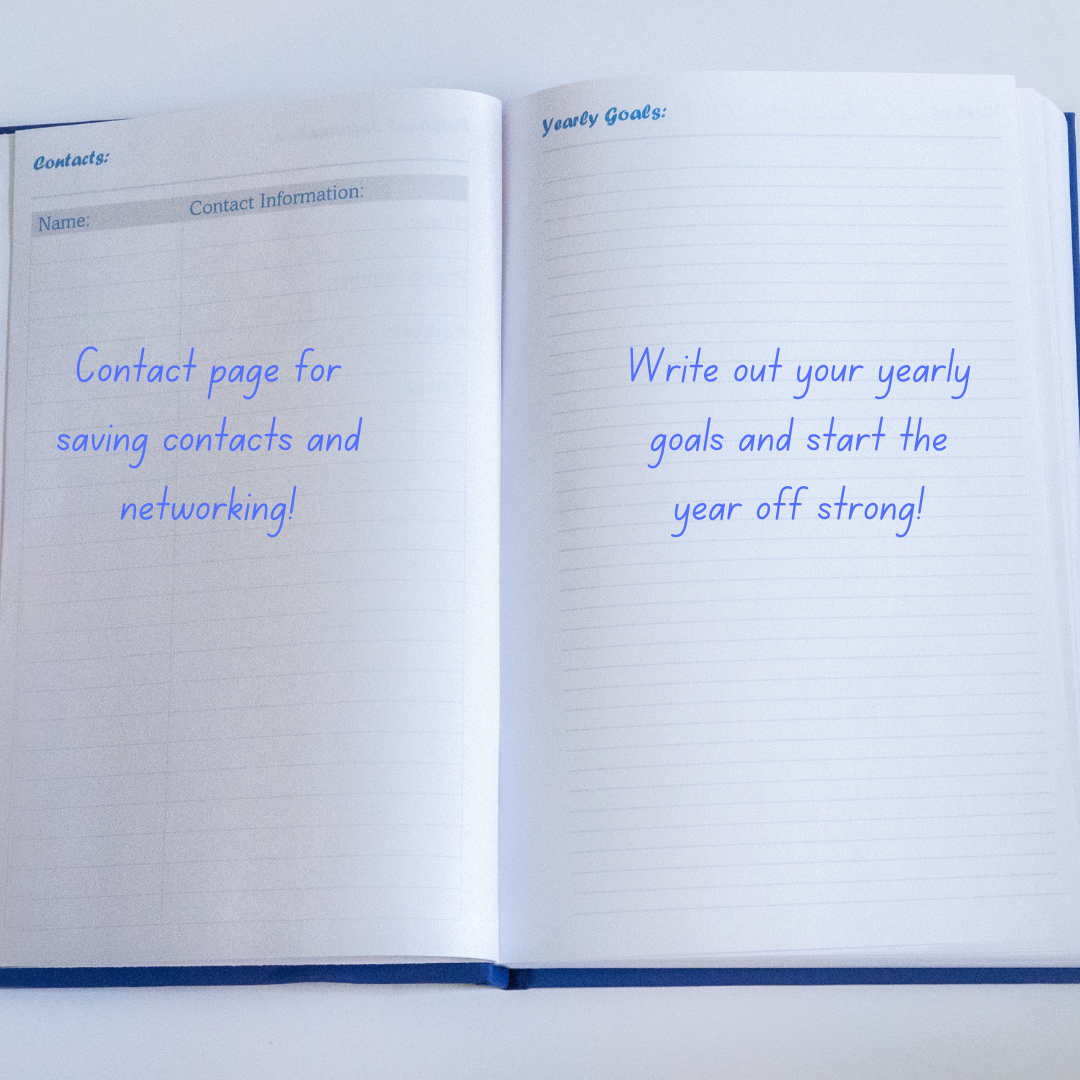 Contacts:
Name: Contact Information:
Contact page for
saving contacts and
networking!
Yearly Goals:
Write out your yearly
goals and start the
year off strong!